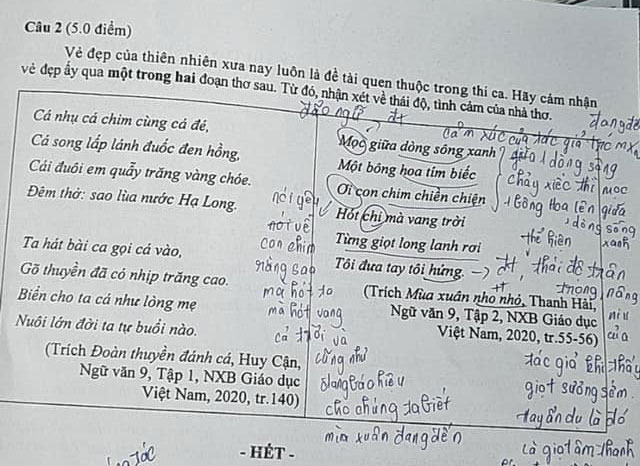 Câu 2 (5.0 điểm)
Vẻ đẹp của thiên nhiên xưa nay luôn là đề tài quen thuộc trong thi ca. Hãy cảm nhận
vẻ đẹp ấy qua một trong hai đoạn thơ sau. Từ đó, nhận xét về thái độ, tình cảm của nhà thơ.
Cá nhụ cá chim cùng cá đé,
Cá song lấp lánh đuốc đen hồng,
Cái đuôi em quẫy trăng vàng chóe.
Đêm thở: sao lùa nước Hạ Long.
Ta hát bài ca gọi cá vào,
Gõ thuyền đã có nhịp trăng cao.
Biển cho ta cá như lòng mẹ
Nuôi lớn đời ta tự buổi nào.
(Trích Đoàn thuyền đánh cá, Huy Cận,
Ngữ văn 9, Tập 1, NXB Giáo dục
Việt Nam, 2020, tr.140)
đảo ngữ
đt
Mọc giữa dòng sông xanh
Một bông hoa tím biếc
Ơi con chim chiền chiện
Hót chi mà vang trời
Từng giọt long lanh rơi
Tôi đưa tay tôi hứng.
(Trích Mùa xuân nho nhỏ, Thanh Hải,
Ngữ văn 9, Tập 2, NXB Giáo dục
Việt Nam, 2020, tr.55-56)
cảm xúc của tác giả
giữa 1 dòng sông
chảy xiếc thì mọc
1 bông hoa lên giữa
dòng sông
xanh
thể hiện
đt, thái độ trân
trọng nâng
niu
của
tác giả khi thấy
giọt sương sớm
hay ẩn dụ là đó
là giọt âm thanh
nói về
con chim
rằng sao
mà hót to
mà hót vang
cả trời và
cũng như
đang báo hiệu
cho chúng ta biết
mùa xuân đang đến
- HẾT -